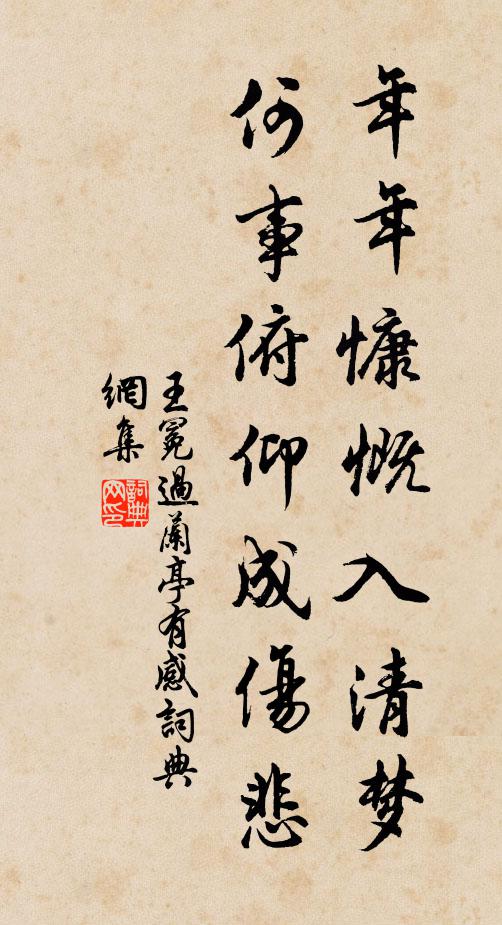 年年慷慨入清梦
何事俯仰成傷悲
王冕過蘭亭有感詞典
網集
詞典
网印